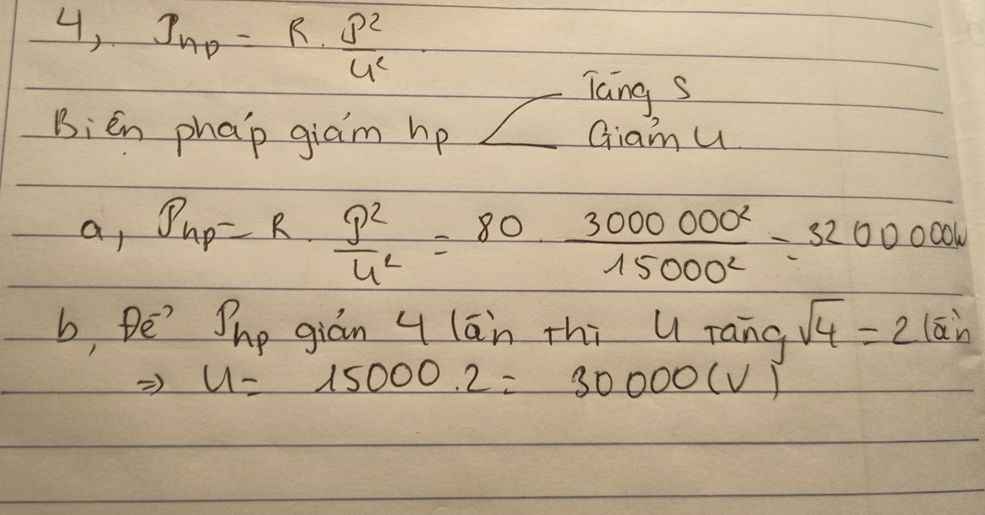 4, P_hp = R . P²/U²
Tăng S
Biện pháp giảm hp
Giảm U
a, P_hp = R . P²/U² = 80 . 3000 000²/15000² = 3200000W
b, Để P_hp giản 4 lần thì U tăng √4 = 2 lần
⇒ U = 15000 . 2 = 30 000 (V)